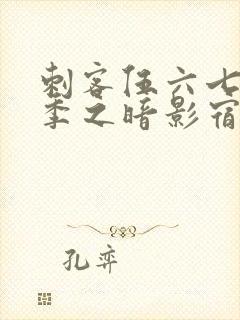 刺客伍六七
季之暗影宿
孔弈